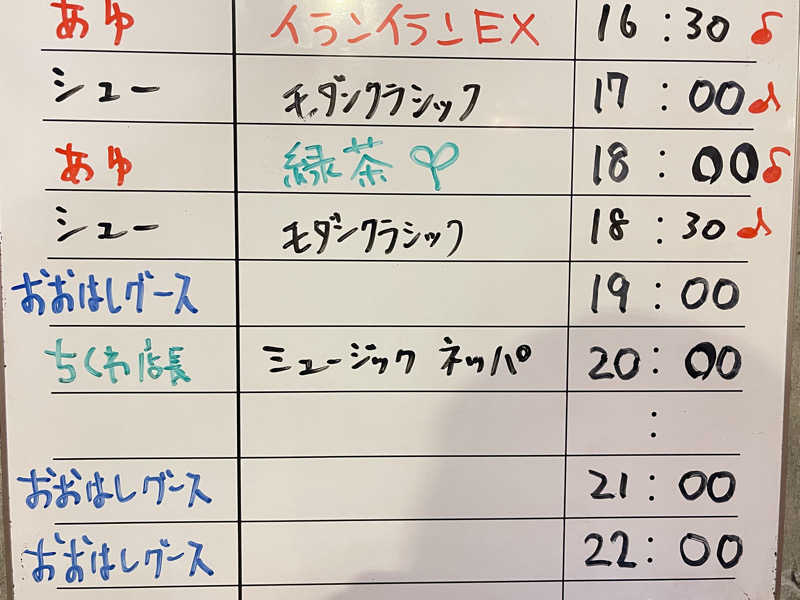 あゆ イランイランEX 16:30♪
シュー モダンクラシック 17:00♪
あゆ 緑茶 18:00♪
シュー モダンクラシック 18:30♪
おおはしグース 19:00
ちくわ店長 ミュージック ネッパ 20:00
:
おおはしグース 21:00
おおはしグース 22:00